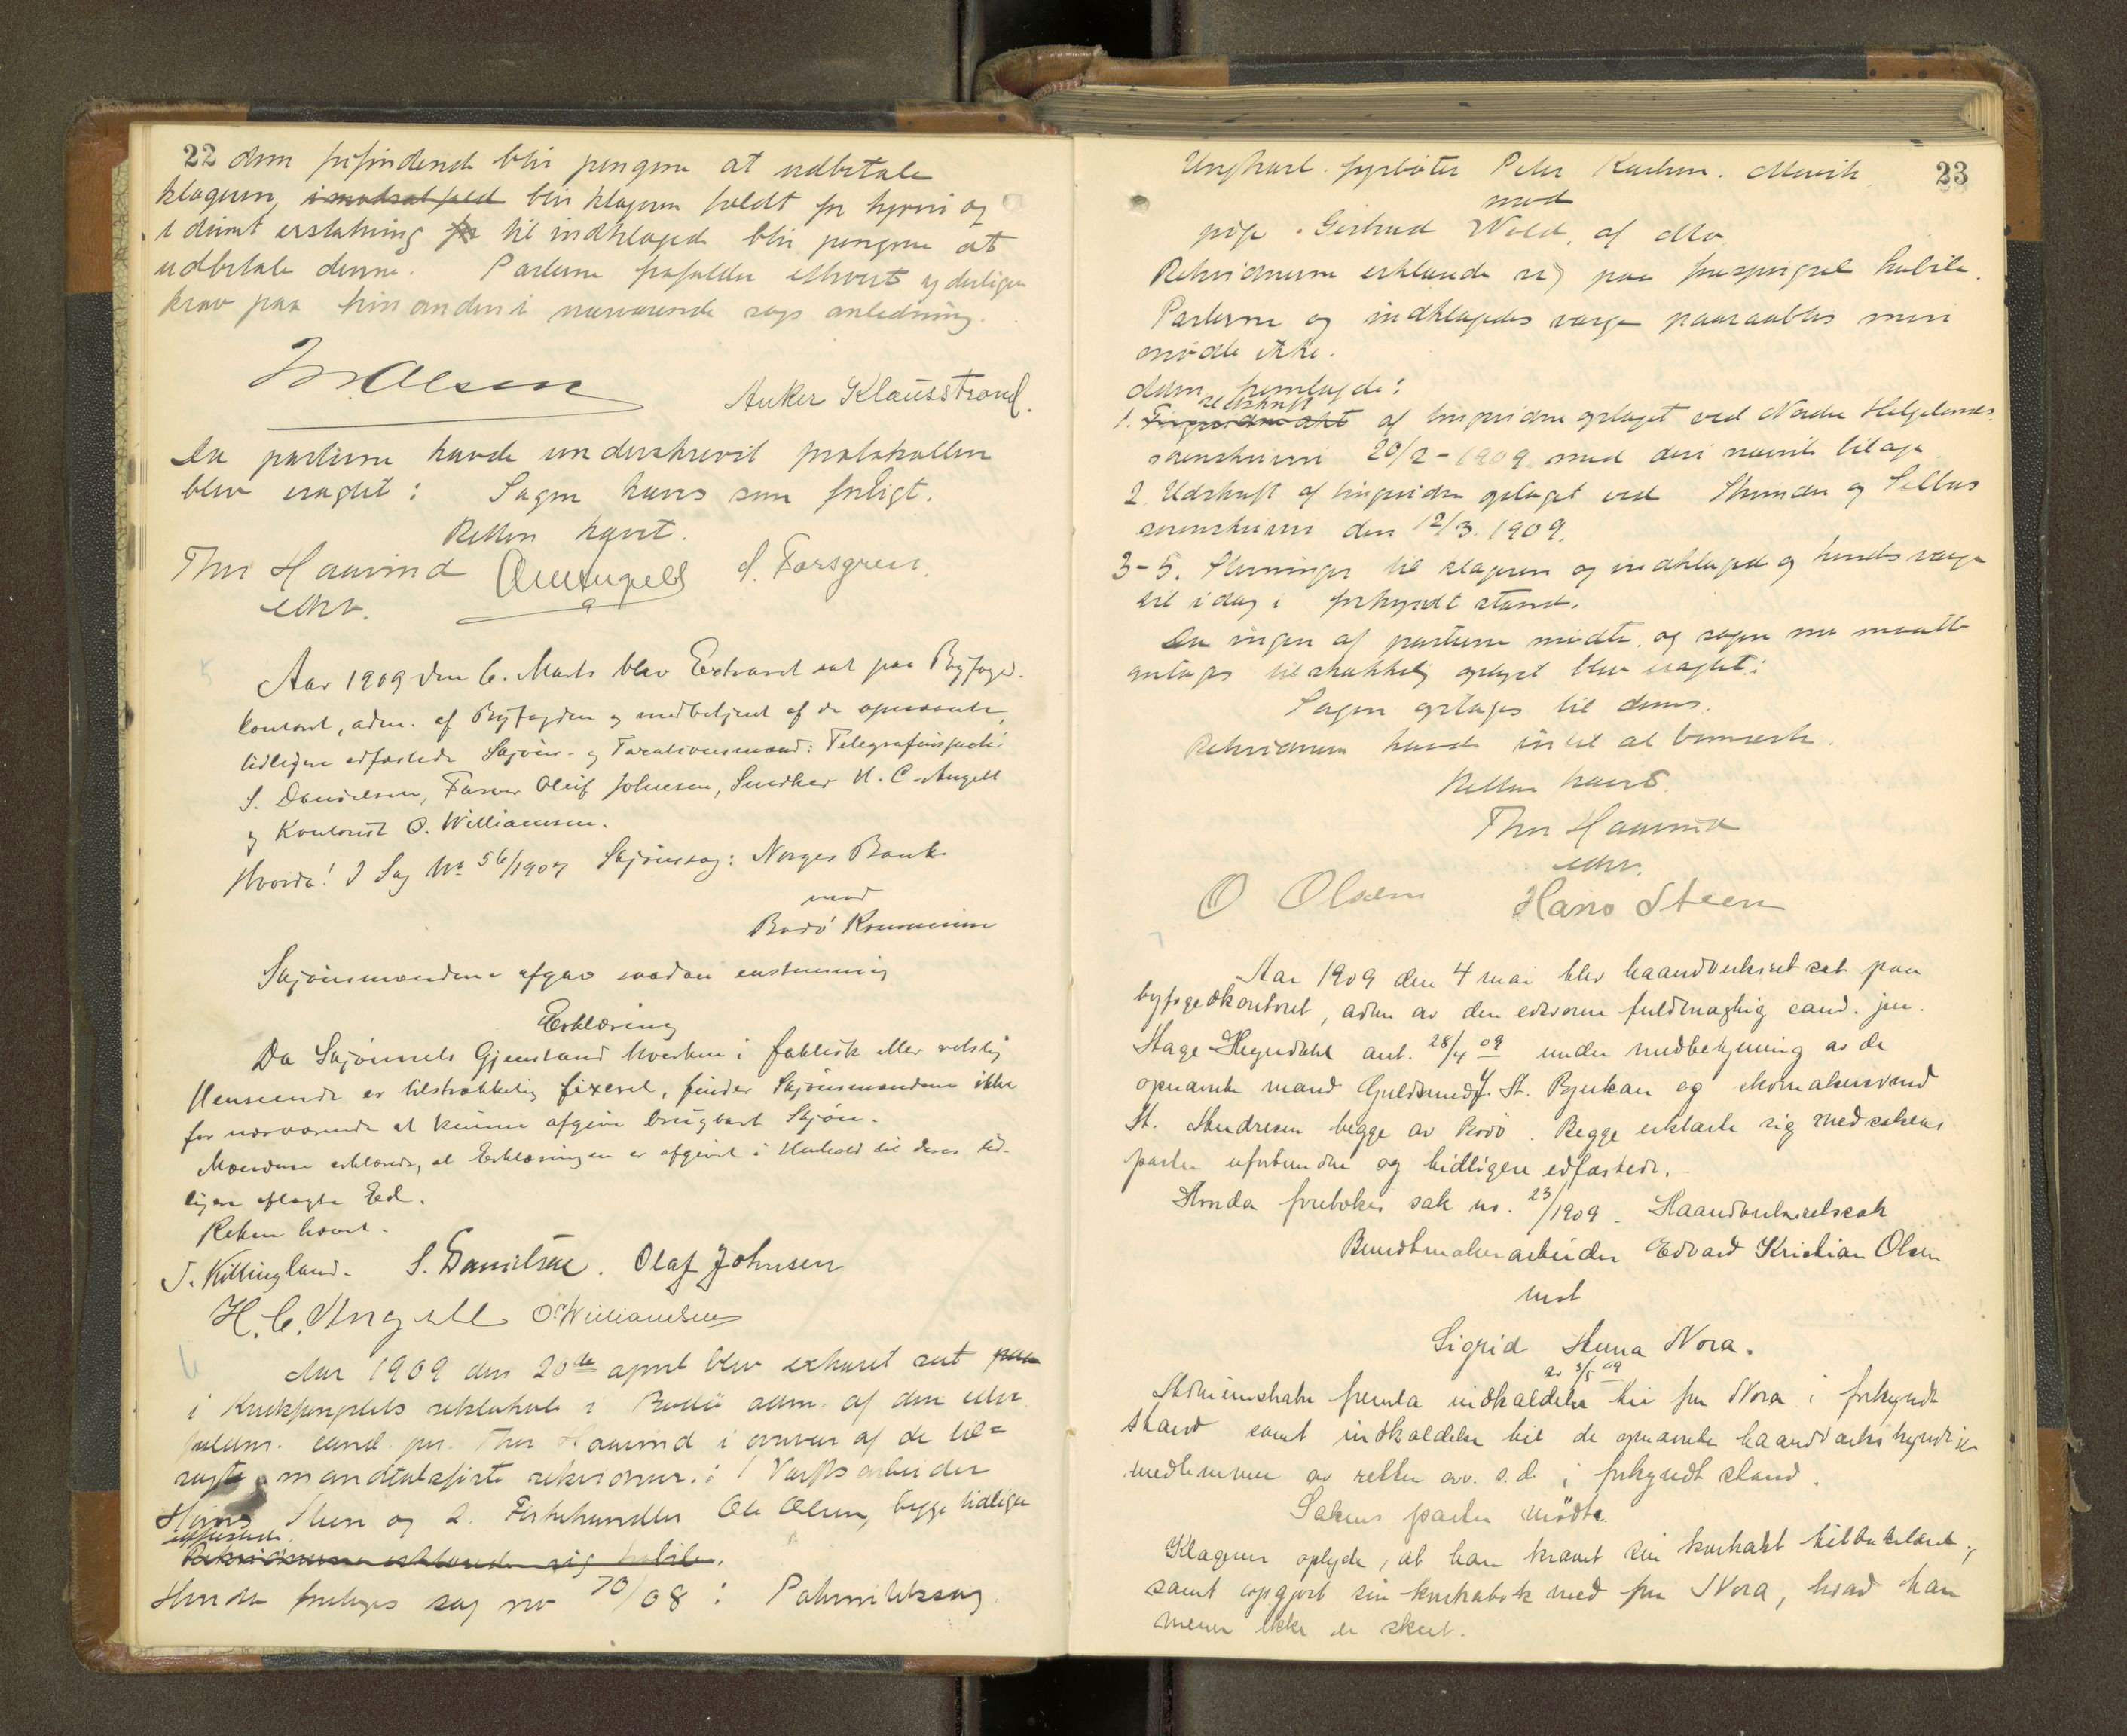 22 dom frifindende blir pengene at udbetale
klageren, i modsat fald blir klageren fældt for hyren og
idømt erstatning for til indklagede blir pengene at
udbetale denne. Parterne frafalder ethvert yderligere
krav paa hinanden i nærværende sags anledning.
M. Olsen
Anker Klausstrand.
Da parterne havde underskrevet protokollen
blev eragtet: Sagen hæves som forligt.
Retten hævet.
Thor Haavind OlemAngell S. Forsgren.
edsv.
5
Aar 1909 den 6. Marts blev Extraret sat paa Byfoged-
kontoret, adm. af Byfogden og medbetjent af de opnævnte,
tidligere edfæstede Skjøns- og Taxationsmænd: Telegrafinspektør
S. Danielsen, Farver Oluf Johnsen, Snedker H. C. Angell
og Kontorist O. Williamsen.
Hvorda! I Sag No 56/1907 Skjønssag: Norges Bank
mod
Bodø Kommune
Skjønsmændene afgav saadan enstemmig
Erklæring
Da Skjønnets Gjenstand hverken i faktisk eller retslig
Henseende er tilstrækkelig fixeret, finder Skjønsmændene ikke
for nærværende at kunne afgive brugbart Skjøn.
Mændene erklærede, at Erklæringen er afgivet i Henhold til deres tid-
ligere aflagte Ed.
Retten hævet.
J. Killingland. S. Danielsen. Olaf Johnsen
H. C. Angell O. Williamsen
6
Aar 1909 den 20de april blev extraret sat paa
i Kredsfængslets retslokale i Bodø adm. af den edsv.
fuldm. cand. jur. Thor Haavind i overvær af de til=
sagte mandtalsførte retsvidner: 1 Værftsarbeider
Hans Steen og 2. Fiskehandler Ole Olsen, begge tidligere
edfæstede.
Retsvidnerne erklærede sig habile.
Hvorda foretages sag no 70/08: Paternitetssag
23
Ungkarl fyrbøter Peter Karlsen. Mevik
mod
pige Gertrud Wold, af Mo
Retsvidnerne erklærede sig paa forespørgsel habile.
Parterne og indklagedes værge paaraabtes men
mødte ikke.
dom. fremlagde:
udskrift
1. Tingsvidne akt af tingsvidne optaget ved Nordre Helgelands
sorenskriveri 20/2-1909 med deri nævnte bilage
2 Udskrift af tingsvidne optaget ved Strinden og Selbus
sorenskriveri den 12/3. 1909.
3-5. Stevninger til klageren og indklagede og hendes værge
til idag i forkyndt stand.
Da ingen af parterne mødte og sagen nu maatte
antages tilstrækkelig oplyst blev eragtet:
Sagen optages til doms.
Retsvidnerne havde intet at bemerke.
Retten hævet.
Thor Haavind
edsv.
O Olsen Hans Steen
7
Aar 1909 den 4 mai blev haandverksret sat paa
byfogedkontoret, adm av den edsvorne fuldmægtig cand. jur.
Stage Heyerdahl ant. 28/4 09 under medbetjening av de
opnævnte mænd Guldsmed J. St. Bjerkan og skomakersvend
St. Andresen begge av Bodø. Begge erklærte sig med sakens
parter uforbundne og tidligere edfæstede.
Hvorda foretokes sak no. 23/1909. Haandverksretssak
Bundtmakerarbeider Edvard Kristian Olsen
mot
Sigrid Anna Nora.
av 3/5 09
Administrator fremla indkaldelse til fru Nora i forkyndt
stand samt indkaldelse til de opnævnte haandverkskyndige
medlemmer av retten av s.d. i forkyndt stand.
Sakens parter mødte.
Klageren oplyste, at han krævet sin kontrakt tilbakelevert,
samt opgjort sin kontrabok med fru Nora, hvad han
mener ikke er skeet.